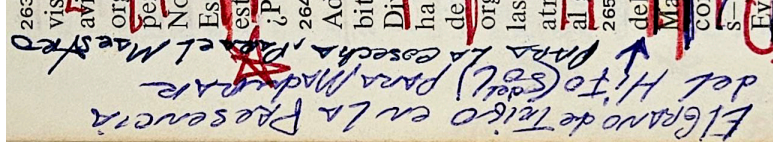 El GRANO de TRIGO en LA PRESENCIA
del HiJo (del SOL) PARA MADURAR
PARA LA COSECHA, PARA el MAESTRO
263
vis
avi
org
pe
No
Es
est
¿P
264
Ad
bit
Di
ha
de
org
las
atr
al
265
del
Ma
s—
Ev